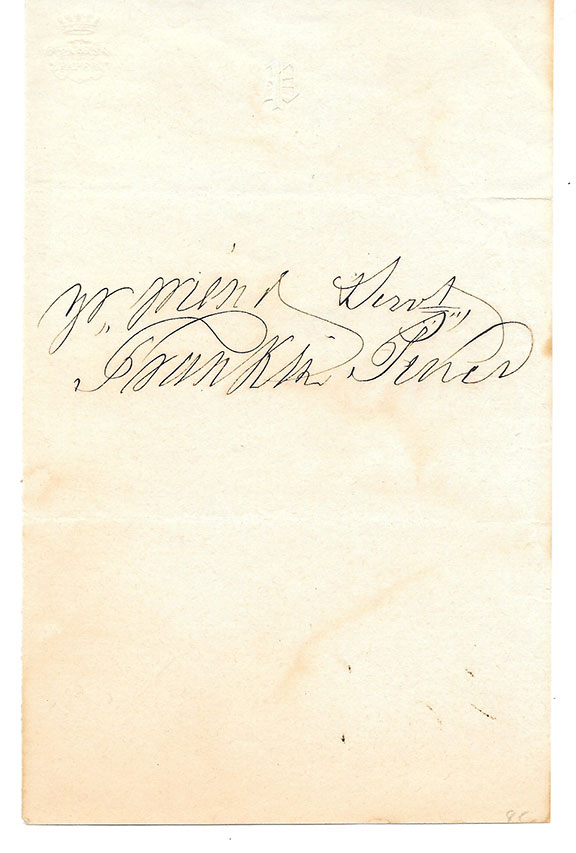 P
yr,, friend Servt,,
Franklin Peirce
98